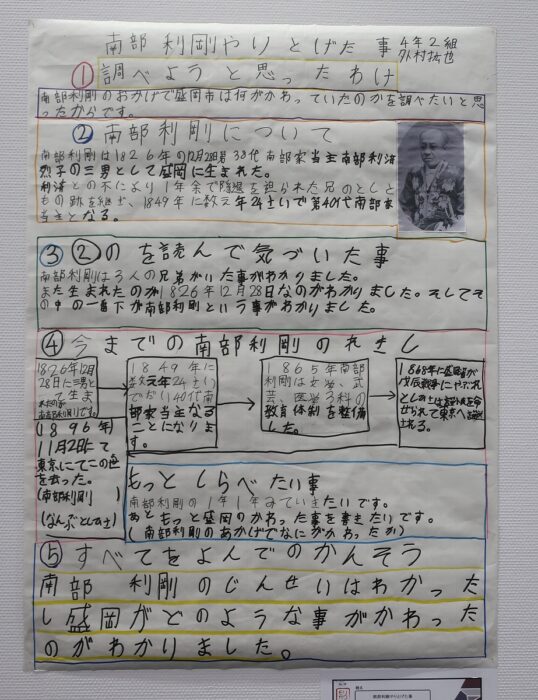 南部利剛やりとげた事
4年2組
外村拡也
①調べようと思ったわけ
南部利剛のおかげで盛岡市は何がかわっていたのかを調べたいと思
ったからです。
②南部利剛について
南部利剛は1826年の12月28日第38代南部家当主南部利済
烈子の三男として盛岡に生まれた。
利済との不仁により1年余で隠退を迫られた兄のとしと
もの跡を継ぎ、1849年に数え年24さいで第40代南部家
当主となる。
③②のを読んで気づいた事
南部利剛は3人の兄弟がいた事がわかりました。
また生まれたのが1826年12月28日なのがわかりました。そしてそ
の中の一番下が南部利剛という事がわかりました。
④今までの南部利剛のれきし
1826年12月
28日に三男と
して生ま
南部利剛です。
1849年に
数え年24さい
でだい40代南
部家当主なる
ことになりま
す。
1865年南部
利剛は文学、武
芸、医学3科の
教育体制を整備
した。
1868年に盛岡藩が
戊辰戦争にやぶれ
としひさは
せられて東京へ
される。
(1896年)
11月2日にて
東京にてこの世
を去った。
(南部利剛)
(なんぶとしひさ)
もっとしらべたい事
南部利剛の1年1年みていきたいです。
あともっと盛岡のかわった事を書きたいです。
(南部利剛のおかげでなにがかわったか)
⑤すべてをよんでのかんそう
南部利剛のじんせいはわかった
し盛岡がどのような事がかわった
のがわかりました。
南部利剛やりとげた事